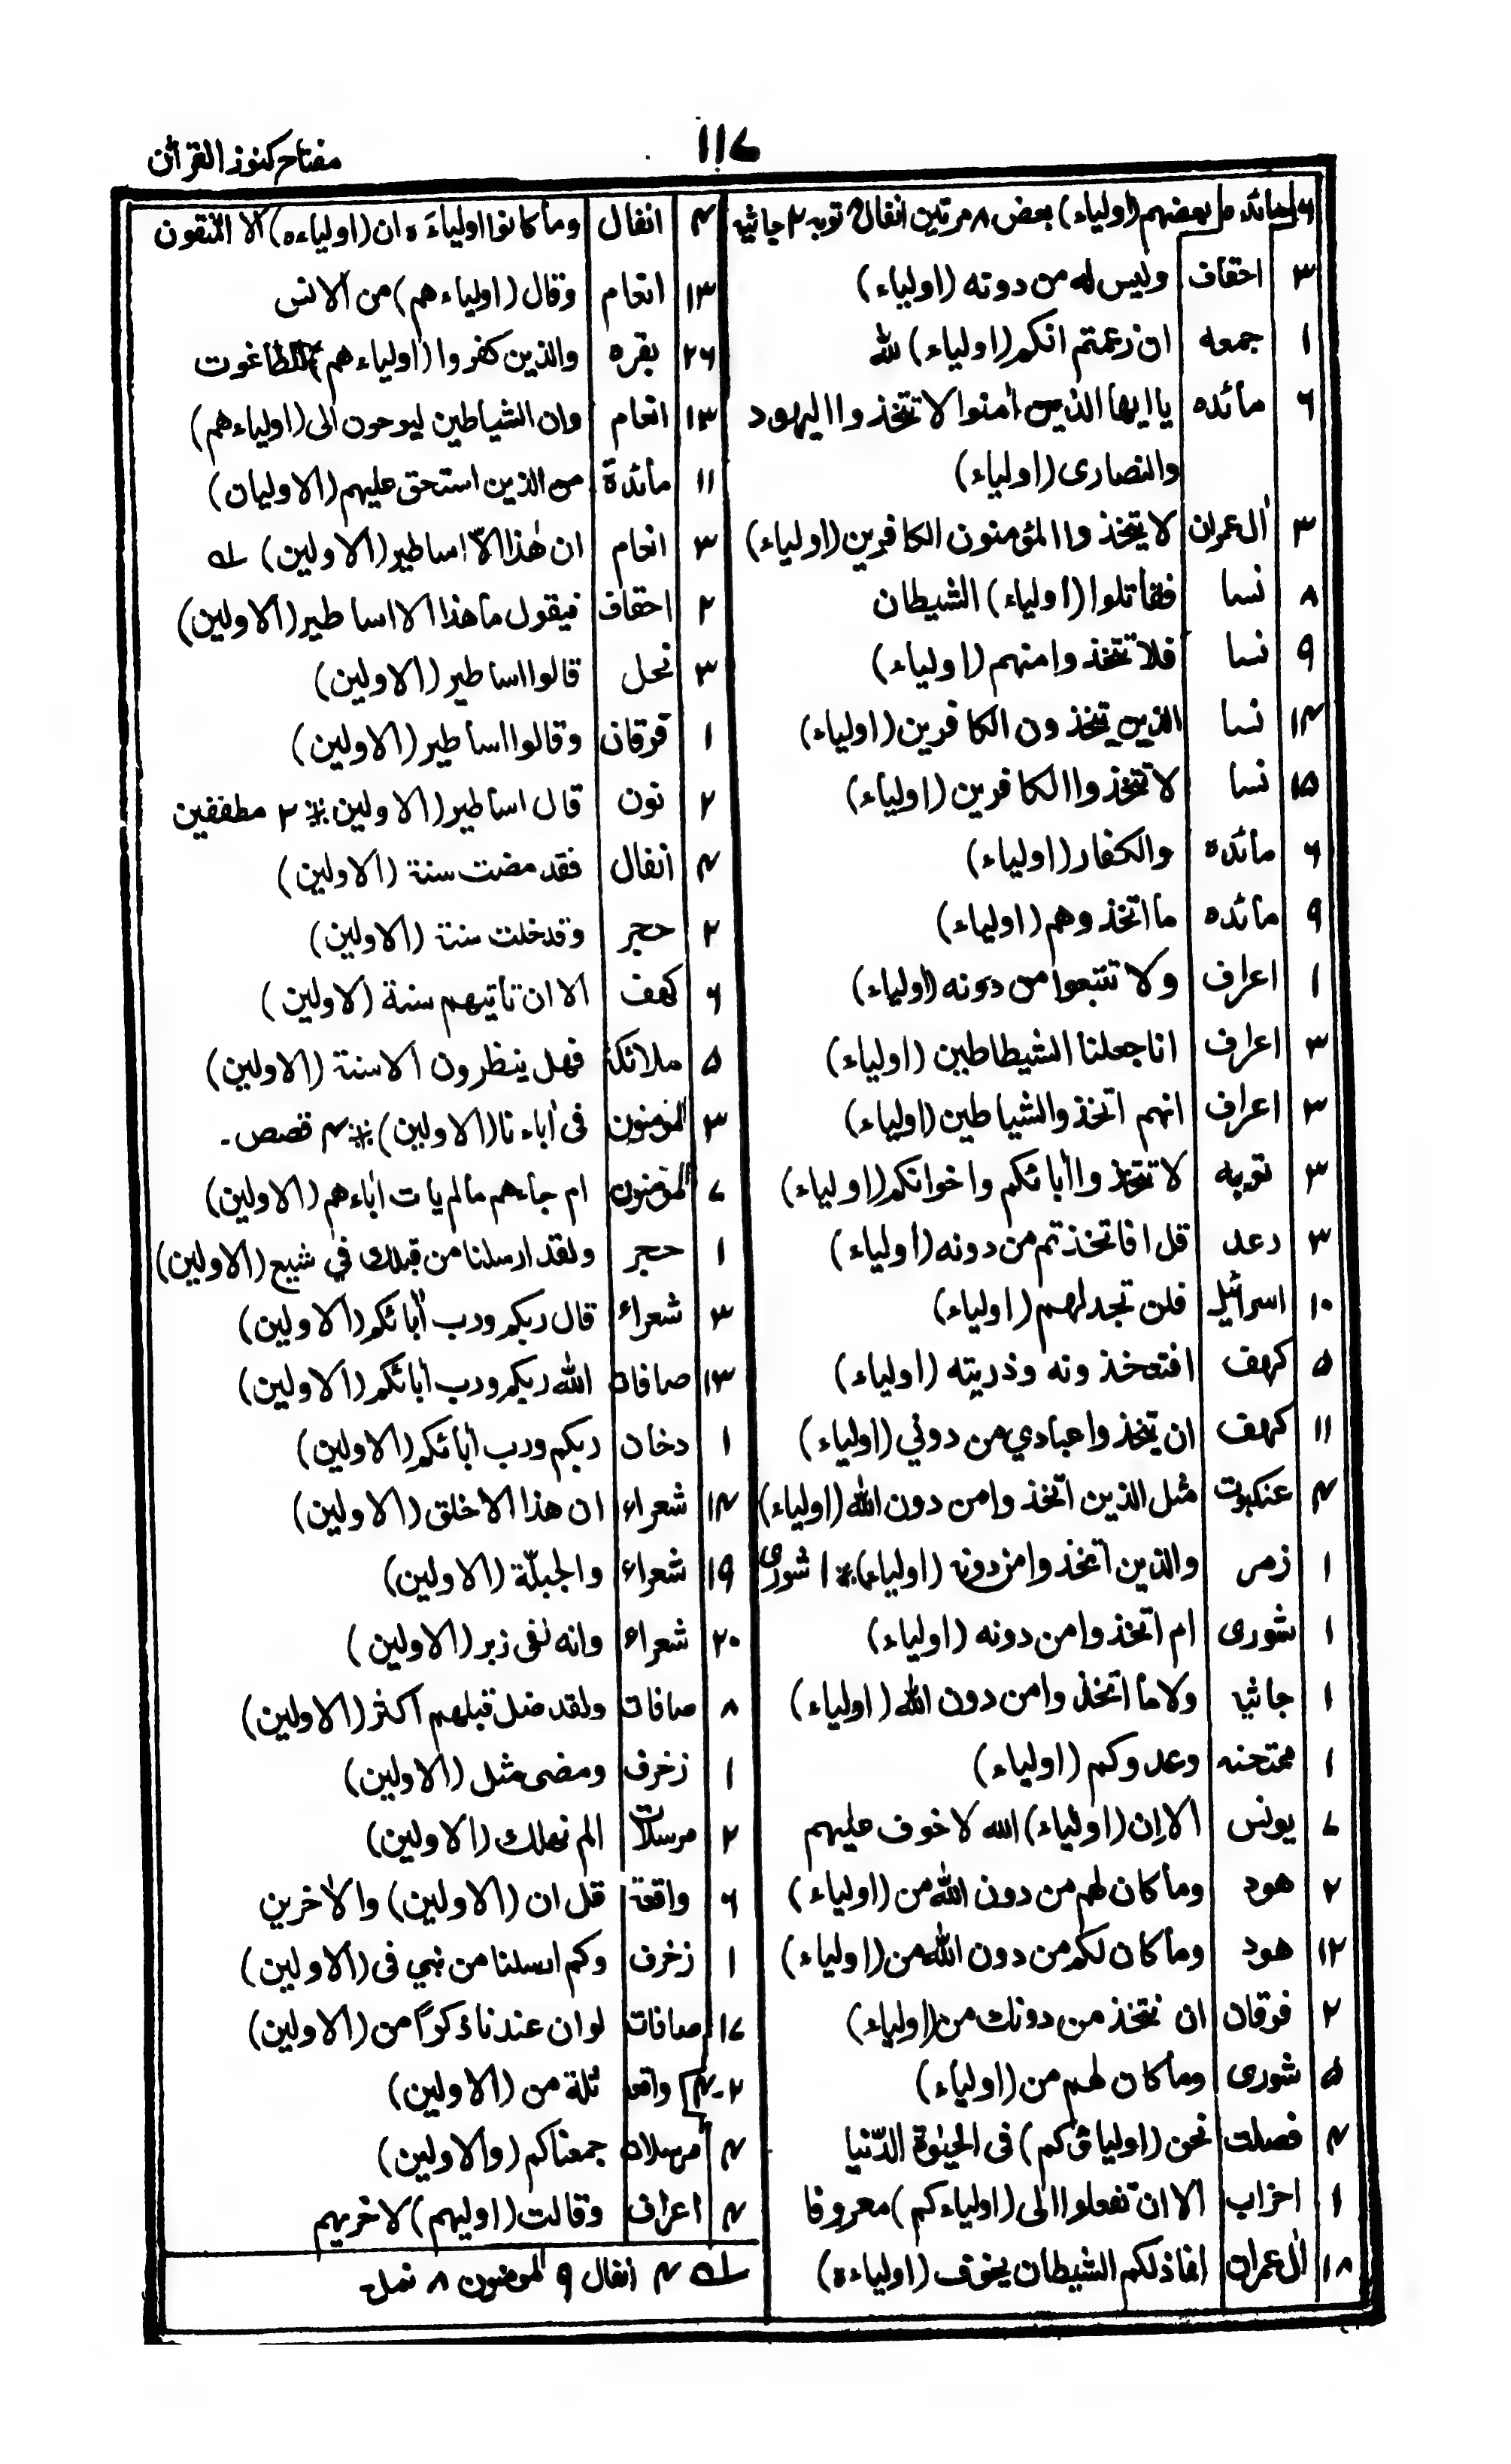 مفتاح کنوز القرآن
۱۱۷
۶ مائده بعضهم (اولیاء) بعض ۸ مرتین انفال ۹ توبه ۲ جاثیه
۳ احقاف ولیس له من دونه (اولیاء)
۱ جمعه ان زعمتم انکم (اولیاء) لله
۶ مائده یا ایها الذین اٰمنوا لا تتخذوا الیهود
والنصاری (اولیاء)
۳ اٰل عمران لا یتخذوا المؤمنون الکافرین (اولیاء)
۸ نسا فقاتلوا (اولیاء) الشیطان
۹ نسا فلا تتخذوا منهم (اولیاء)
۱۴ نسا الذین یتخذون الکافرین (اولیاء)
۱۵ نسا لا تتخذوا الکافرین (اولیاء)
۶ مائده والکفار (اولیاء)
۹ مائده ما اتخذوهم (اولیاء)
۱ اعراف ولا تتبعوا من دونه (اولیاء)
۳ اعراف انا جعلنا الشیطاطین (اولیاء)
۳ اعراف انهم اتخذوالشیاطین (اولیاء)
۳ توبه لا تتخذوا اٰبائکم واخوانکم (اولیاء)
۳ رعد قل افاتخذتم من دونه (اولیاء)
۱۰ اسرائیل فلن تجد لهم (اولیاء)
۵ کهف افتتخذونه وذریته (اولیاء)
۱۱ کهف ان یتخذوا عبادی من دونی (اولیاء)
۴ عنکبوت مثل الذین اتخذوا من دون الله (اولیاء)
۱ زمر والذین اتخذوا من دونه (اولیاء) ※ ۱ شوری
۱ شوری ام اتخذوا من دونه (اولیاء)
۱ جاثیه ولا ما اتخذوا من دون الله (اولیاء)
۱ ممتحنه وعدوکم (اولیاء)
۷ یونس الا إن (اولیاء) الله لا خوف علیهم
۲ هود وما کان لهم من دون الله من (اولیاء)
۱۲ هود وما کان لکم من دون الله من (اولیاء)
۲ فرقان ان نتخذ من دونك من (اولیاء)
۵ شوری وما کان لهم من (اولیاء)
۴ فصلت نحن (اولیاؤکم) فی الحیٰوة الدّنیا
۱ احزاب الا ان تفعلوا الی (اولیاءکم) معروفا
۱۸ اٰل عمران انما ذلکم الشیطان یخوف (اولیاءه)
۴ انفال وما کانوا اولیاءَه ان (اولیاءه) الا المتقون
۱۳ انعام وقال (اولیاءهم) من الانس
۲۶ بقره والذین کفروا (اولیاءهم) الطاغوت
۱۳ انعام وان الشیاطین لیوحون الی (اولیاءهم)
۱۱ مائدة من الذین استحق علیهم (الاولیان)
۳ انعام ان هٰذا الّا اساطیر (الاولین) له
۲ احقاف فیقول ما هذا الا اساطیر (الاولین)
۳ نحل قالوا اساطیر (الاولین)
۱ فرقان وقالوا اساطیر (الاولین)
۲ نون قال اساطیر (الاولین ※ ۲ مطففین
۴ انفال فقد مضت سنة (الاولین)
۲ حجر وقد خلت سنة (الاولین)
۶ کهف الا ان تاتیهم سنة (الاولین)
۵ ملائکة فهل ینظرون الا سنة (الاولین)
۳ المؤمنون فی اٰباءنا (الاولین) ※ ۴ قصص۔
۷ المؤمنون ام جاءهم مالم یات اٰباءهم (الاولین)
۱ حجر ولقد ارسلنا من قبلك فی شیع (الاولین)
۳ شعراء قال ربکم ورب اٰبائکم (الاولین)
۱۳ صافات الله ربکم ورب اٰبائکم (الاولین)
۱ دخان ربکم ورب اٰبائکم (الاولین)
۱۴ شعراء ان هذا الا خلق (الاولین)
۱۹ شعراء والجبلّة (الاولین)
۲۰ شعراء وانه لفی زبر (الاولین)
۸ صافات ولقد ضل قبلهم اکثر (الاولین)
۱ زخرف ومضی مثل (الاولین)
۲ مرسلات الم نهلك (الاولین)
۶ واقعة قل ان (الاولین) والاٰخرین
۱ زخرف وکم ارسلنا من نبی فی (الاولین)
۱۷ صافات لو ان عندنا ذکرًا من (الاولین)
۲-۴ واقعه ثلة من (الاولین)
۴ مرسلات جمعناکم (والاولین)
۴ اعراف وقالت (اولیهم) لاخریهم
له ۴ انفال ۹ المومنون ۸ نمل